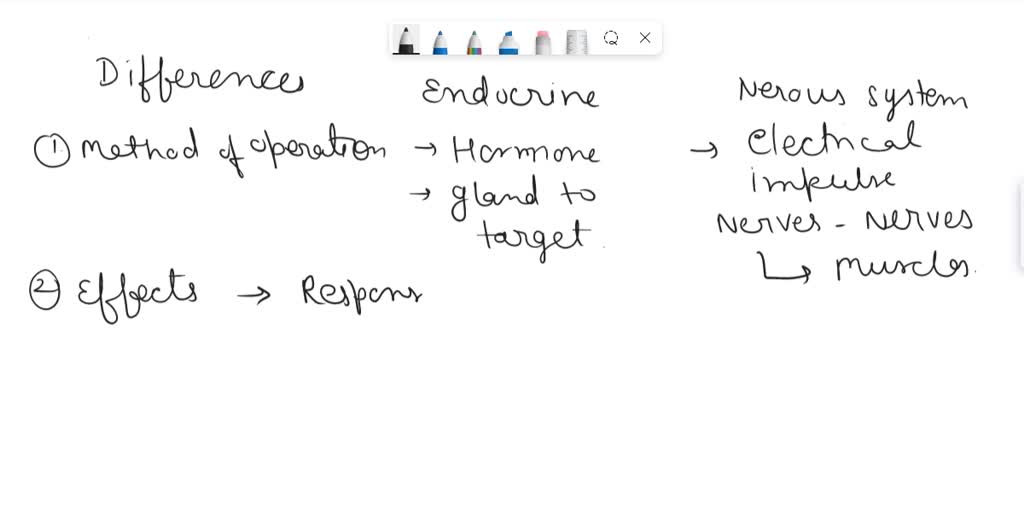 Differences
Endocrine
Nerous system
① method of operation → Hormone
→ electrical
impulse
→ gland to
target.
Nerves - Nerves
↳ muscles.
② Effects → Respons